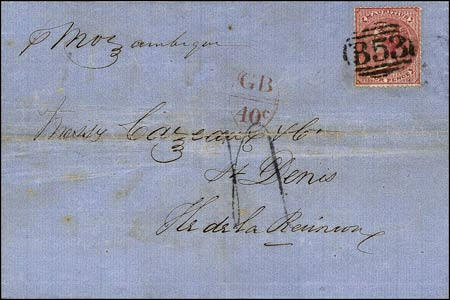 p Mozambique
MAURITIUS
B53
PENCE
GB
10c
Messrs Cazeaux & Co
St Denis
Ile de la Réunion